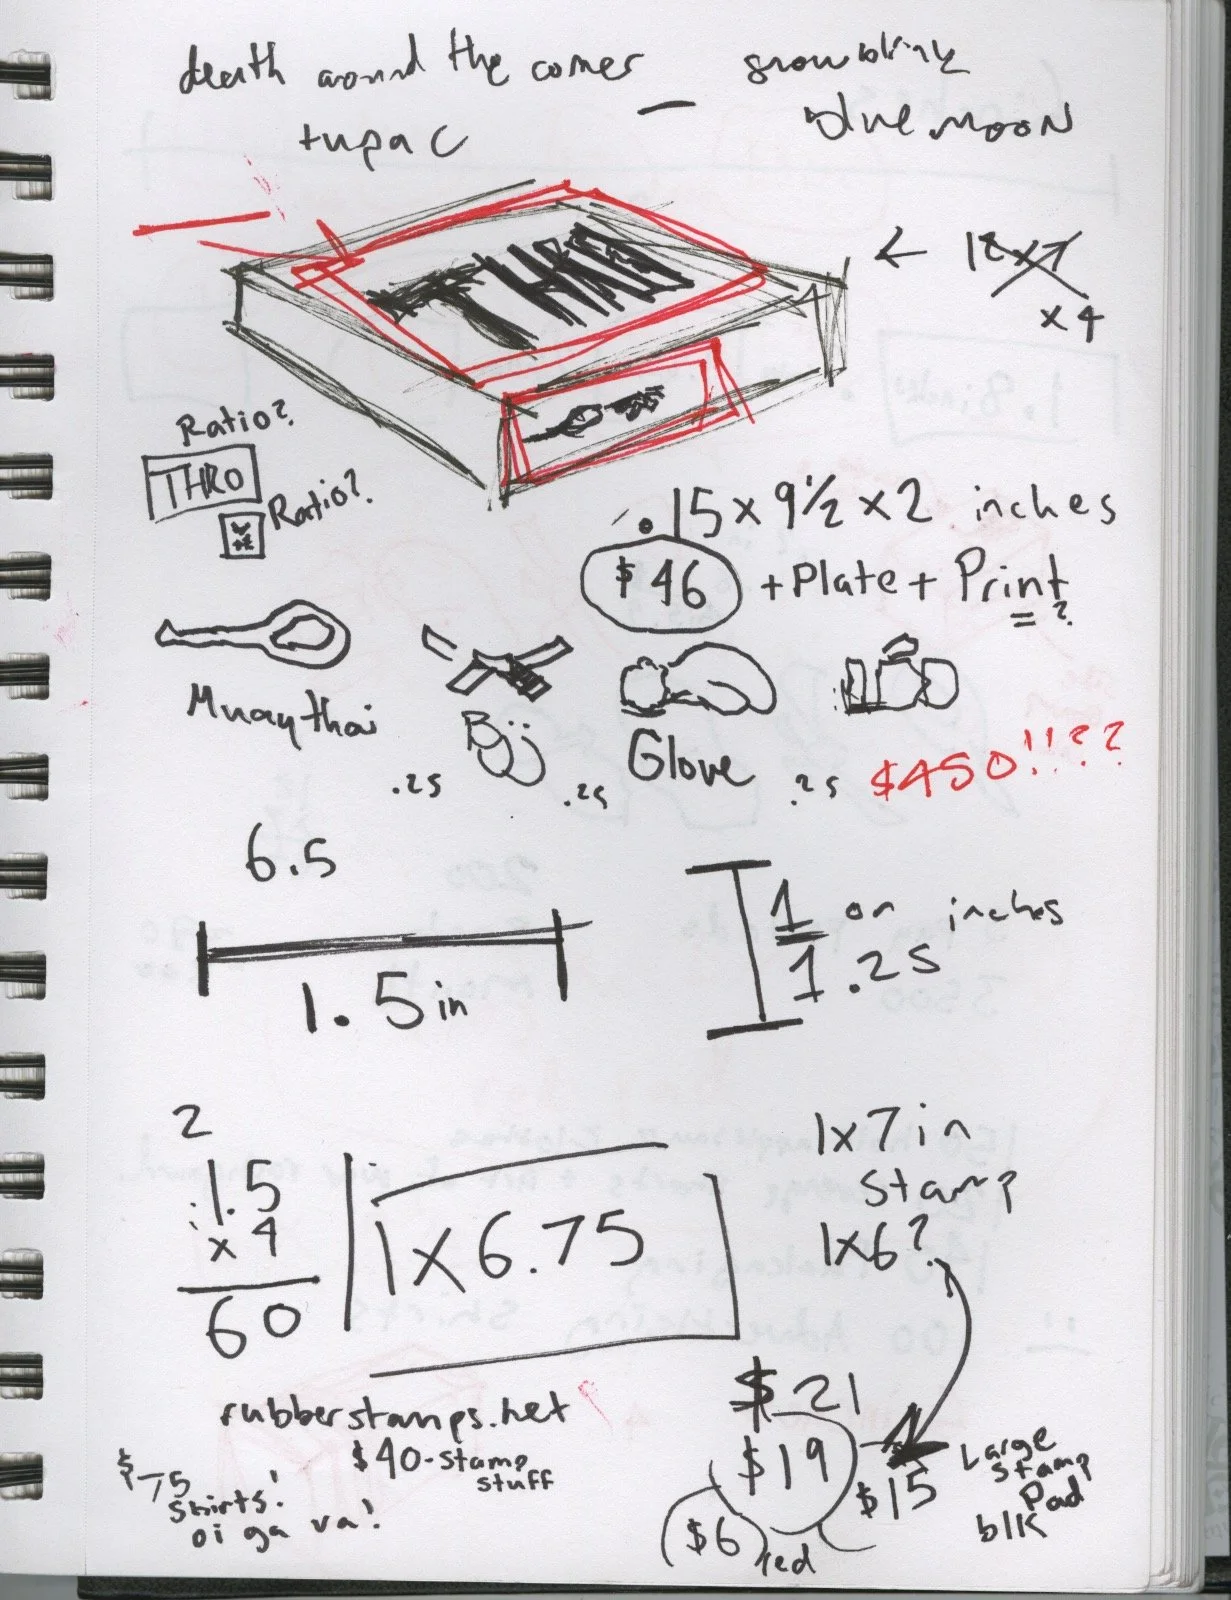 death around the corner — snowblink
tupac blue moon
THRO
← 12 x 7
x 4
Ratio?
THRO
Ratio?
.15 x 9½ x 2 inches
$46 + Plate + Print
= ?
Muay thai
Bjj
Glove
.25 .25 .25 $450!!??
6.5
1.5 in
1 or inches
1.25
2
1.5
x 4
60
1 x 6.75
1x7 in
Stamp
1x6?
rubberstamps.net
$40 - stamp
stuff
$75
shirts!
oi ga va!
$21
$19
$15
Large
stamp
Pad
blk
$6 red